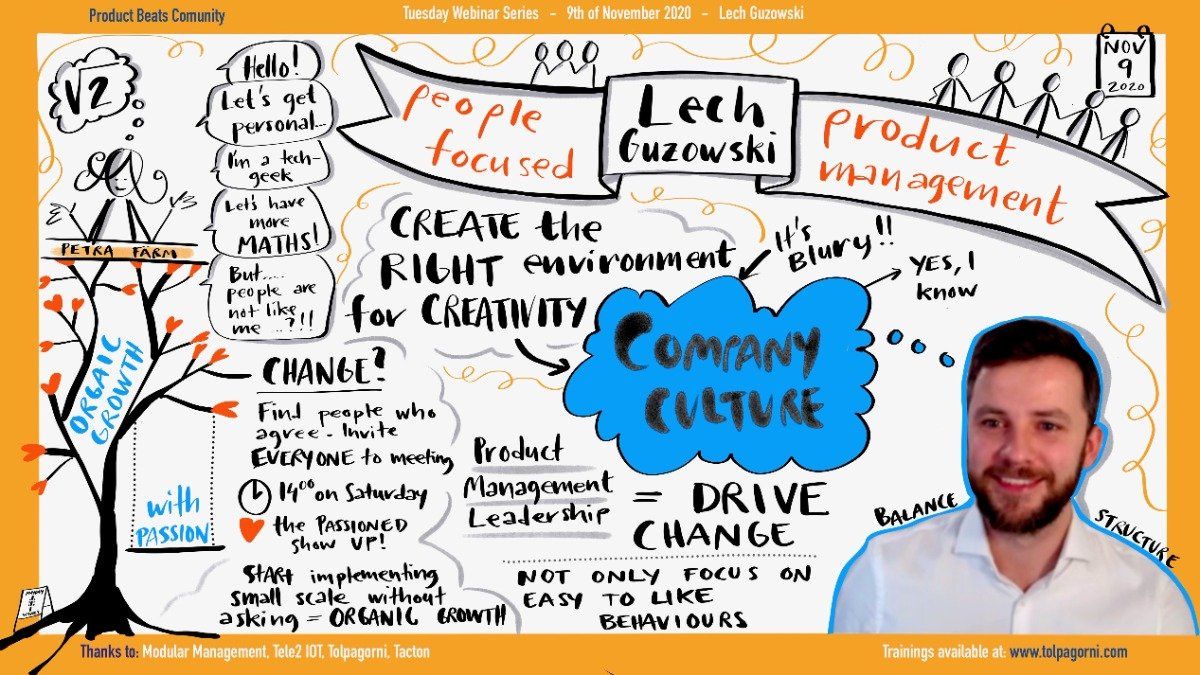 Product Beats Comunity
Tuesday Webinar Series - 9th of November 2020 - Lech Guzowski
V2
Hello!
Let's get
personal...
I'm a tech-
geek
Let's have
more
MATHS!
But....
people are
not like
me ...?!!
PETRA FÄRM
people
focused
Lech
Guzowski
product
management
NOV
9
2020
CREATE the
RIGHT environment
for CREATIVITY
It's
Blury!!
YES, I
know
COMPANY
CULTURE
ORGAIC
GROWTH
with
PASSION
CHANGE?
Find people who
agree - Invite
EVERYONE to meeting
14⁰⁰ on Saturday
the PASSIONED
show UP!
START implementing
small scale without
asking = ORGANIC GROWTH
Product
Management
Leadership
= DRIVE
CHANGE
NOT ONLY FOCUS ON
EASY TO LIKE
BEHAVIOURS
BALANCE
STRUCTURE
Thanks to: Modular Management, Tele2 IOT, Tolpagorni, Tacton
Trainings available at: www.tolpagorni.com